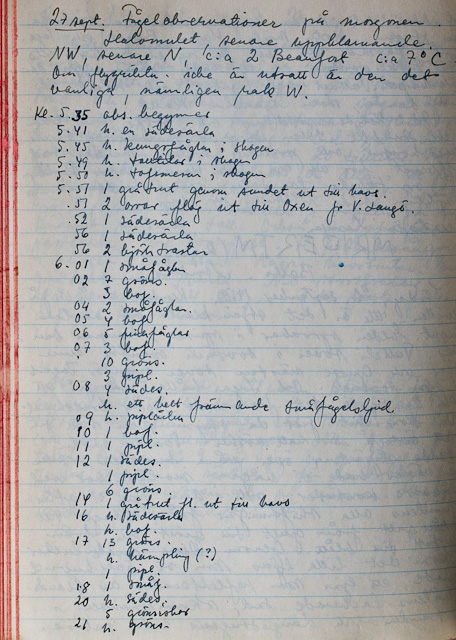 27 sept. Fågelobservationer på morgonen.
Halvmulet, senare uppklarnande.
NW, senare N, c:a 2 Beaufort c:a 7° C
Om flyttn. icke är utsatt är den det
vanliga, nämligen rakt W.
Kl. 5.35 obs. begynner
5.41 h. en sädesärla
5.45 h. kungsfåglar i skogen
5.49 h. talltitor i skogen
5.50 h. tofsmesen i skogen
5.51 1 gråtrut genom sundet ut till havs.
.51 2 orrar flög ut till Oxen fr V. Långö.
.52 1 sädesärla
56 1 sädesärla
56 2 björktrastar
6.01 1 småfågel
02 7 gröns.
3 bof.
04 2 småfåglar
05 4 bof.
06 5 finkfåglar
07 3 bof.
10 gröns.
3 pipl.
08 4 sädes.
h. ett helt främmande småfågelsljud
09 h. piplärka
10 1 bof.
11 1 pipl.
12 1 sädes.
1 pipl.
6 gröns.
14 1 gråtrut fl. ut till havs
16 h. sädesärla
h. bof.
17 13 gröns.
h. hämpling (?)
1 pipl.
18 1 småf.
20 h. sädes.
5 grönsiskor
21 h. gröns.